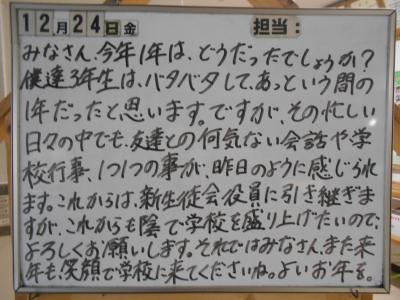 12月24日金 担当:
みなさん、今年1年は、どうだったでしょうか?
僕達3年生は、バタバタして、あっという間の
1年だったと思います。ですが、その忙しい
日々の中でも、友達との何気ない会話や学
校行事、1つ1つの事が、昨日のように感じられ
ます。これからは、新生徒会役員に引き継ぎま
すが、これからも陰で学校を盛り上げたいので、
よろしくお願いします。それではみなさん、また来
年も、笑顔で学校に来てくださいね。よいお年を。